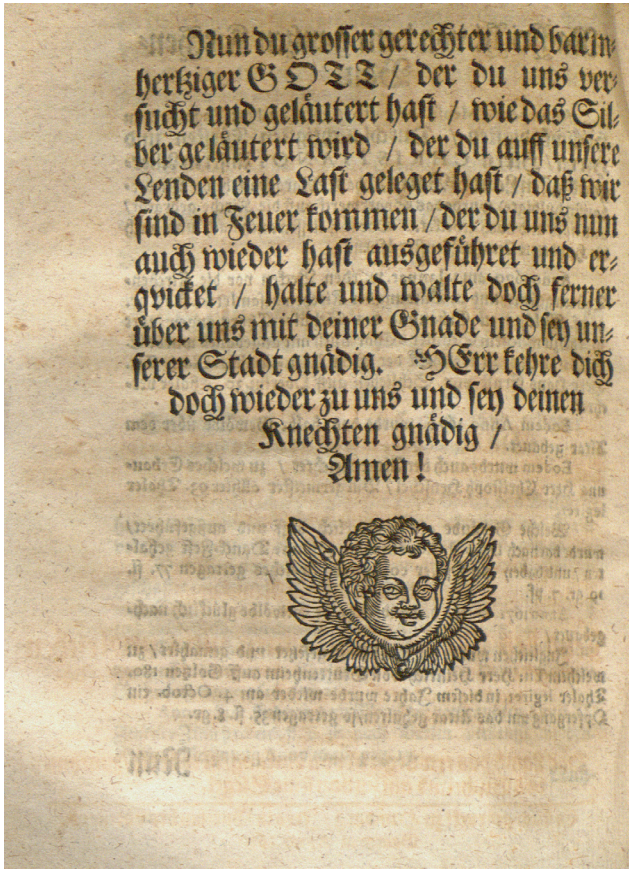 Nun du grosser gerechter und barm-
hertziger GOTT / der du uns ver-
sucht und geläutert hast / wie das Sil-
ber geläutert wird / der du auff unsere
Lenden eine Last geleget hast / daß wir
sind in Feuer kommen / der du uns nun
auch wieder hast ausgeführet und er-
qvicket / halte und walte doch ferner
über uns mit deiner Gnade und sey un-
serer Stadt gnädig. HErr kehre dich
doch wieder zu uns und sey deinen
Knechten gnädig /
Amen!